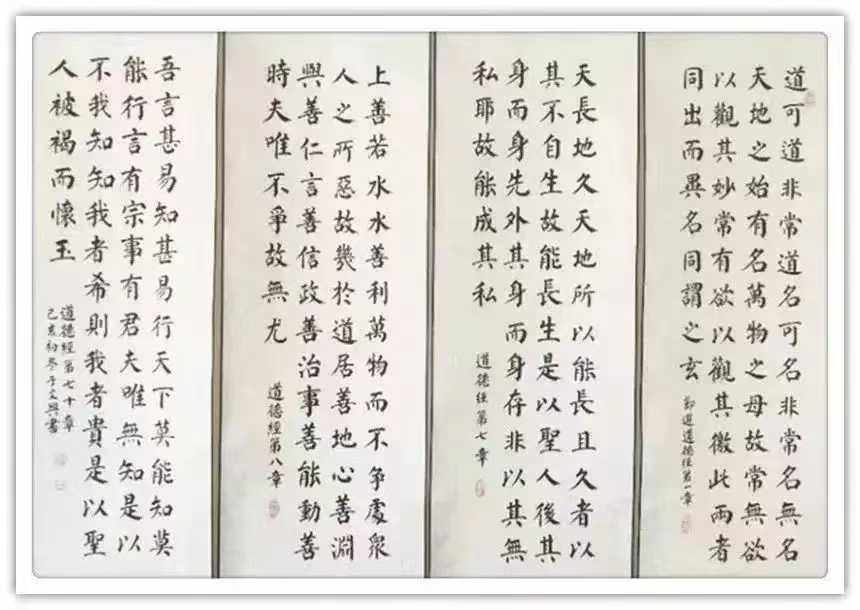 道可道非常道名可名非常名無名
天地之始有名萬物之母故常無欲
以觀其妙常有欲以觀其徼此兩者
同出而異名同謂之玄
節選道德經第一章
天長地久天地所以能長且久者以
其不自生故能長生是以聖人後其
身而身先外其身而身存非以其無
私耶故能成其私
道德經第七章
上善若水水善利萬物而不争處衆
人之所惡故幾於道居善地心善淵
與善仁言善信政善治事善能動善
時夫唯不爭故無尤
道德經第八章
吾言甚易知甚易行天下莫能知莫
能行言有宗事有君夫唯無知是以
不我知知我者希則我者貴是以聖
人被褐而懷玉
道德經第七十章
己亥初冬于文興書